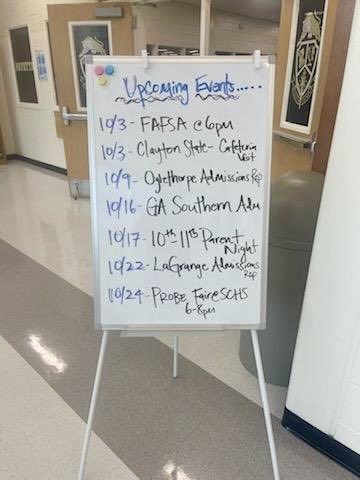 Upcoming Events.....
10/3- FAFSA @ 6pm
10/3- Clayton State- Cafeteria
Visit
10/9- Oglethorpe Admissions Rep
10/16- GA Southern Adm
10/17- 10th 11th Parent
Night
10/22- LaGrange Admissions
Rep
10/24- PROBE Fair@SCHS
6-8pm